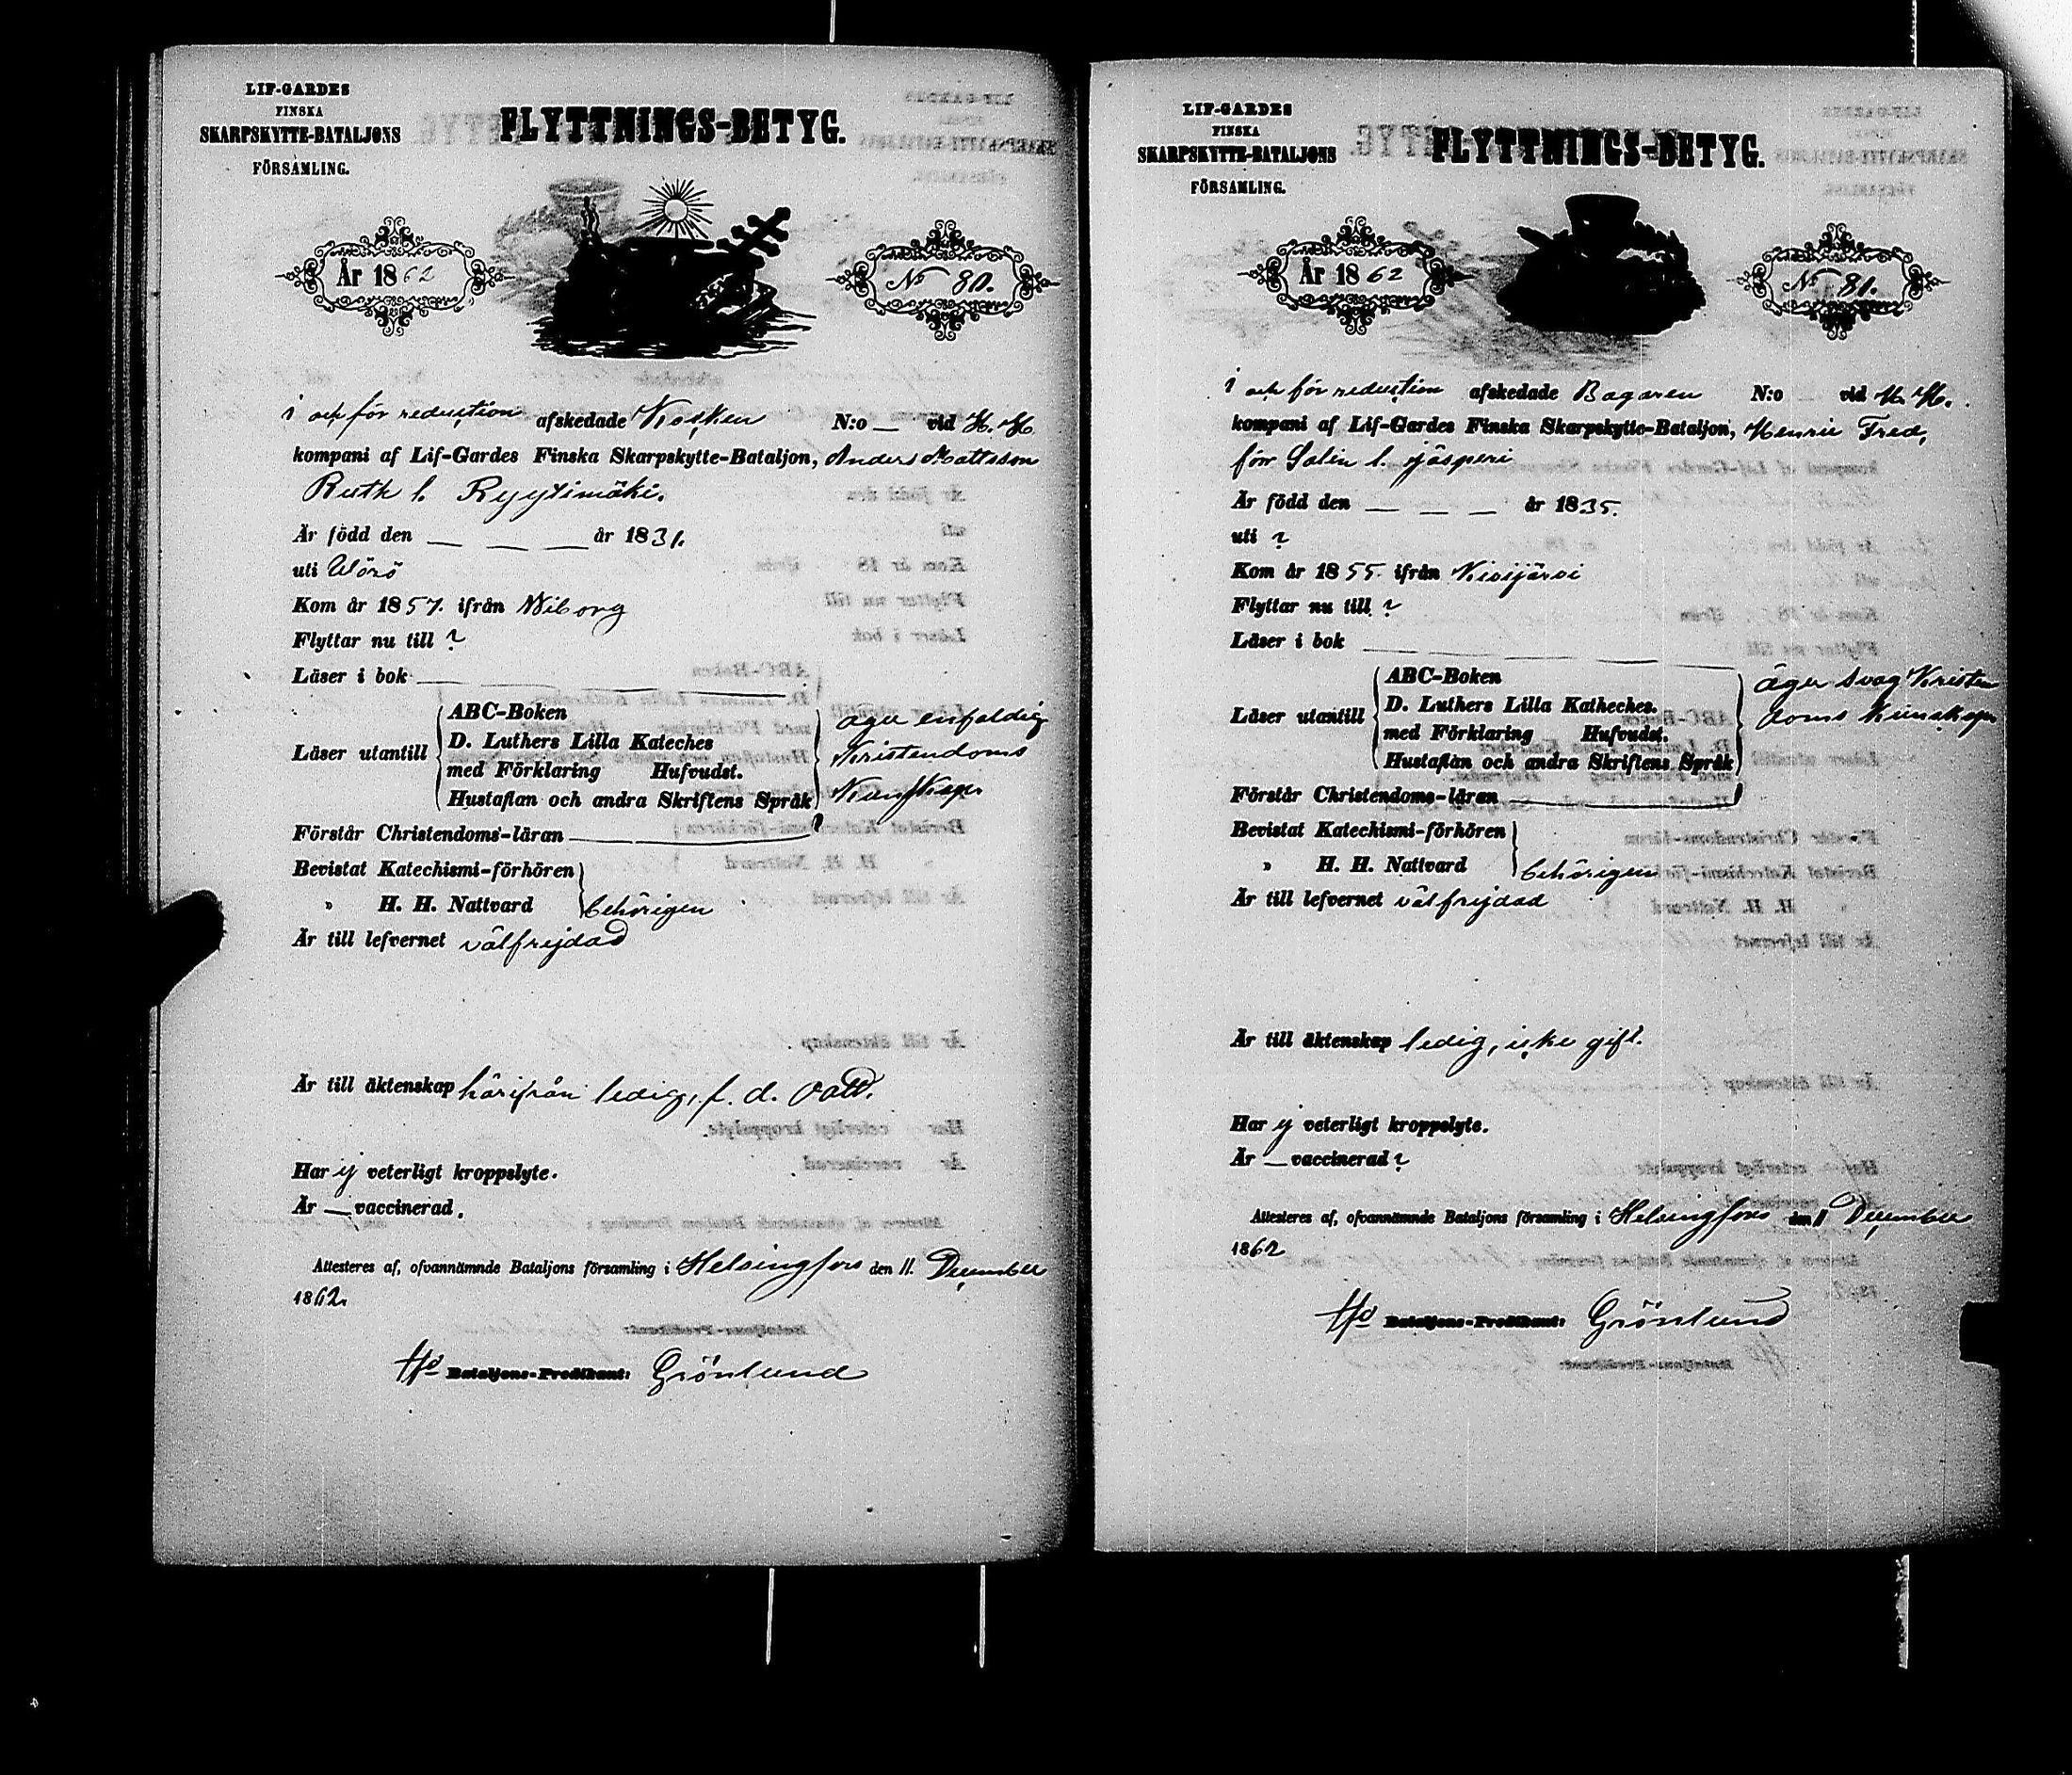 LIF-GARDES
FINSKA
SKARPSKYTTE-BATALJONS
FÖRSAMLING.
FLYTTNINGS-BETYG.
År 1862
No 80.
i och för reduction afskedade Kosken N:o — vid H. H.
kompani af Lif-Gardes Finska Skarpskytte-Bataljon, Anders Mattsson
Ruth l. Ryytimäki.
Är född den — — — år 1831.
uti Wörö
Kom år 1857. ifrån Wiborg
Flyttar nu till ?
Läser i bok
ABC-Boken
D. Luthers Lilla Kateches
Läser utantill
med Förklaring Hufvudst.
Hustaflan och andra Skriftens Språk
äger enfaldig
Kristendoms
Kunskap
Förstår Christendoms-läran
Bevistat Katechismi-förhören
" H. H. Nattvard behörigen
Är till lefvernet välfrejdad
Är till äktenskap härifrån ledig, f. d.
Har ej veterligt kroppslyte.
Är — vaccinerad.
Attesteres af, ofvannämnde Bataljons församling i Helsingfors den 11. December
1862.
Bataljons-Predikant: Grönlund
LIF-GARDES
FINSKA
SKARPSKYTTE-BATALJONS
FÖRSAMLING.
FLYTTNINGS-BETYG.
År 1862
No 81.
i och för reduction afskedade Bagaren N:o — vid H. H.
kompani af Lif-Gardes Finska Skarpskytte-Bataljon, Henric Fred,
för Salin l. Jäsperi
Är född den — — — år 1835.
uti ?
Kom år 1855. ifrån Kivijärvi
Flyttar nu till ?
Läser i bok
ABC-Boken
D. Luthers Lilla Katheches.
Läser utantill
med Förklaring Hufvudst.
Hustaflan och andra Skriftens Språk
äger svag Kristen
doms kunskap
Förstår Christendoms-läran
Bevistat Katechismi-förhören
" H. H. Nattvard behörigen
Är till lefvernet välfrejdad
Är till äktenskap ledig, icke gift.
Har ej veterligt kroppslyte.
Är — vaccinerad ?
Attesteres af, ofvannämnde Bataljons församling i Helsingfors den 11 December
1862
Bataljons-Predikant: Grönlund